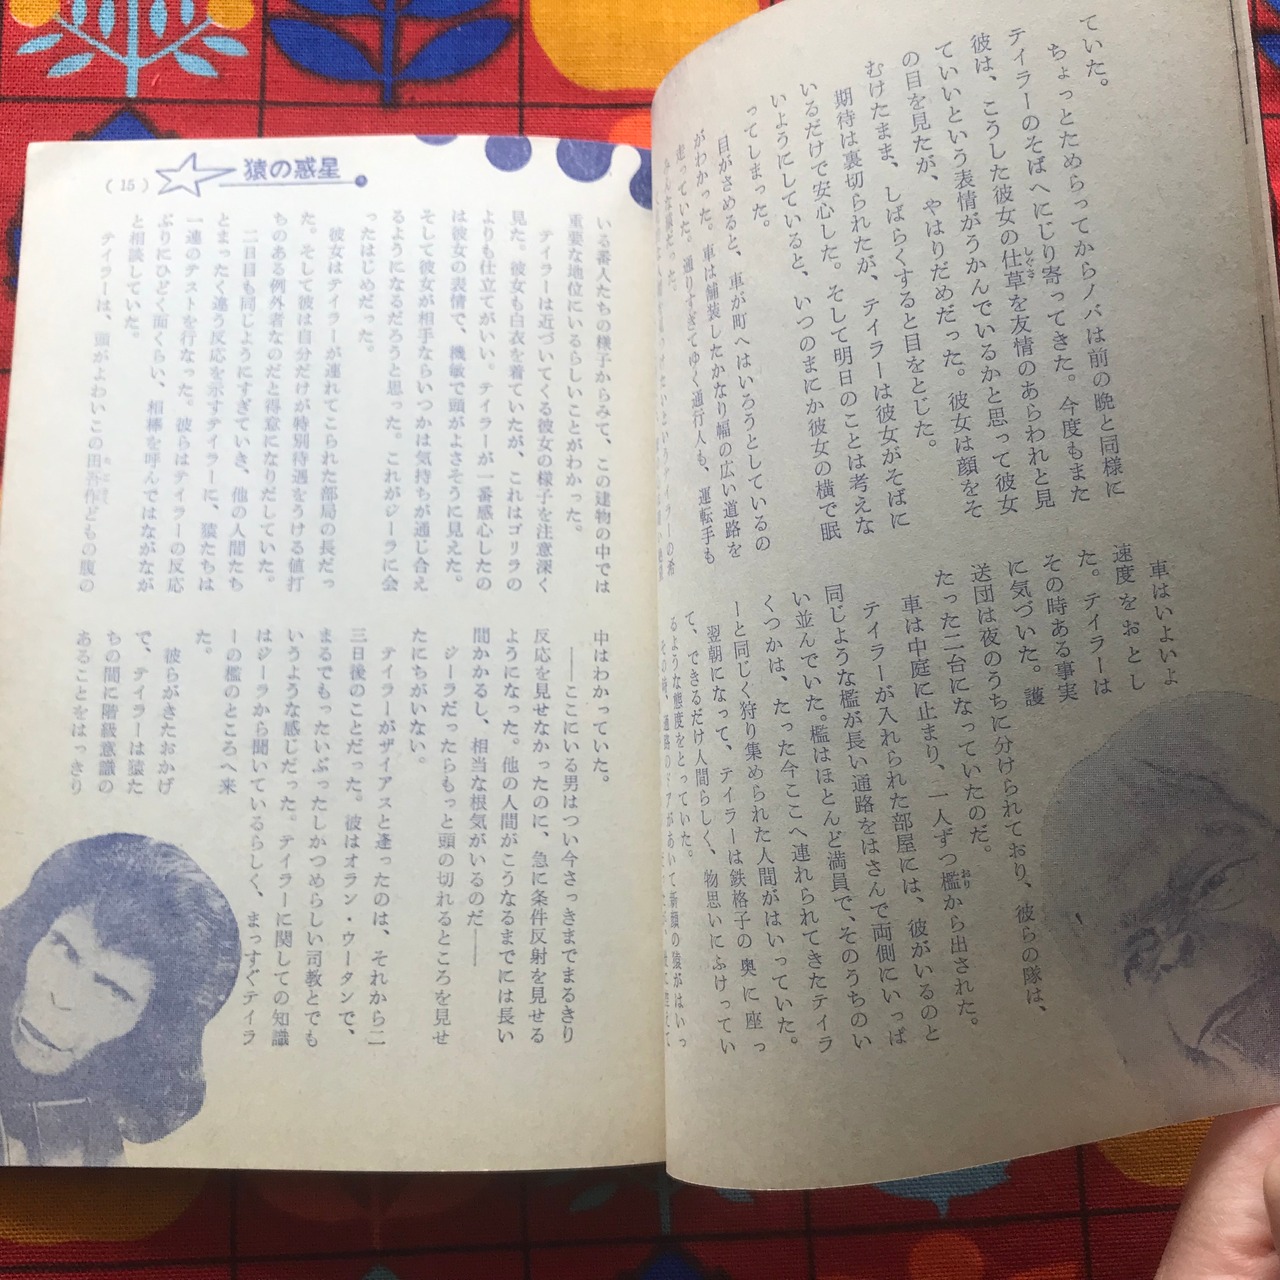 ていた。
ちょっとためらってからノバは前の晩と同様に
テイラーのそばへにじり寄ってきた。今度もまた
彼は、こうした彼女の仕草を友情のあらわれと見
しぐさ
ていいという表情がうかんでいるかと思って彼女
の目を見たが、やはりだめだった。彼女は顔をそ
むけたまま、しばらくすると目をとじた。
期待は裏切られたが、テイラーは彼女がそばに
いるだけで安心した。そして明日のことは考えな
いようにしていると、いつのまにか彼女の横で眠
ってしまった。
目がさめると、車が町へはいろうとしているの
がわかった。車は舗装したかなり幅の広い道路を
走っていた。通りすぎてゆく通行人も、運転手も
車はいよいよ
速度をおとし
た。テイラーは
その時ある事実
に気づいた。護
送団は夜のうちに分けられており、彼らの隊は、
たった二台になっていたのだ。
車は中庭に止まり、一人ずつ檻から出された。
おり
テイラーが入れられた部屋には、彼がいるのと
同じような檻が長い通路をはさんで両側にいっぱ
い並んでいた。檻はほとんど満員で、そのうちのい
くつかは、たった今ここへ連れられてきたテイラ
ーと同じく狩り集められた人間がはいっていた。
翌朝になって、テイラーは鉄格子の奥に座っ
て、できるだけ人間らしく、物思いにふけってい
るような態度をとっていた。
その時、通路のドアがあいて新顔の猿がはいっ
猿の惑星
(15)
いる番人たちの様子からみて、この建物の中では
重要な地位にいるらしいことがわかった。
テイラーは近づいてくる彼女の様子を注意深く
見た。彼女も白衣を着ていたが、これはゴリラの
よりも仕立てがいい。テイラーが一番感心したの
は彼女の表情で、機敏で頭がよさそうに見えた。
そして彼女が相手ならいつかは気持ちが通じ合え
るようになるだろうと思った。これがジーラに会
ったはじめだった。
彼女はテイラーが連れてこられた部局の長だっ
た。そして彼は自分だけが特別待遇をうける値打
ちのある例外者なのだと得意になりだしていた。
二日目も同じようにすぎていき、他の人間たち
とまったく違う反応を示すテイラーに、猿たちは
一連のテストを行なった。彼らはテイラーの反応
ぶりにひどく面くらい、相棒を呼んではながなが
と相談していた。
テイラーは、頭がよわいこの田吾作どもの腹の
中はわかっていた。
――ここにいる男はつい今さっきまでまるきり
反応を見せなかったのに、急に条件反射を見せる
ようになった。他の人間がこうなるまでには長い
間かかるし、相当な根気がいるのだ――
ジーラだったらもっと頭の切れるところを見せ
たにちがいない。
テイラーがザイアスと逢ったのは、それから二
三日後のことだった。彼はオラン・ウータンで、
まるでも、たいぶったしかつめらしい司教とでも
いうような感じだった。テイラーに関しての知識
はジーラから聞いているらしく、まっすぐテイラ
ーの檻のところへ来
た。
彼らがきたおかげ
で、テイラーは猿た
ちの間に階級意識の
あることをはっきり